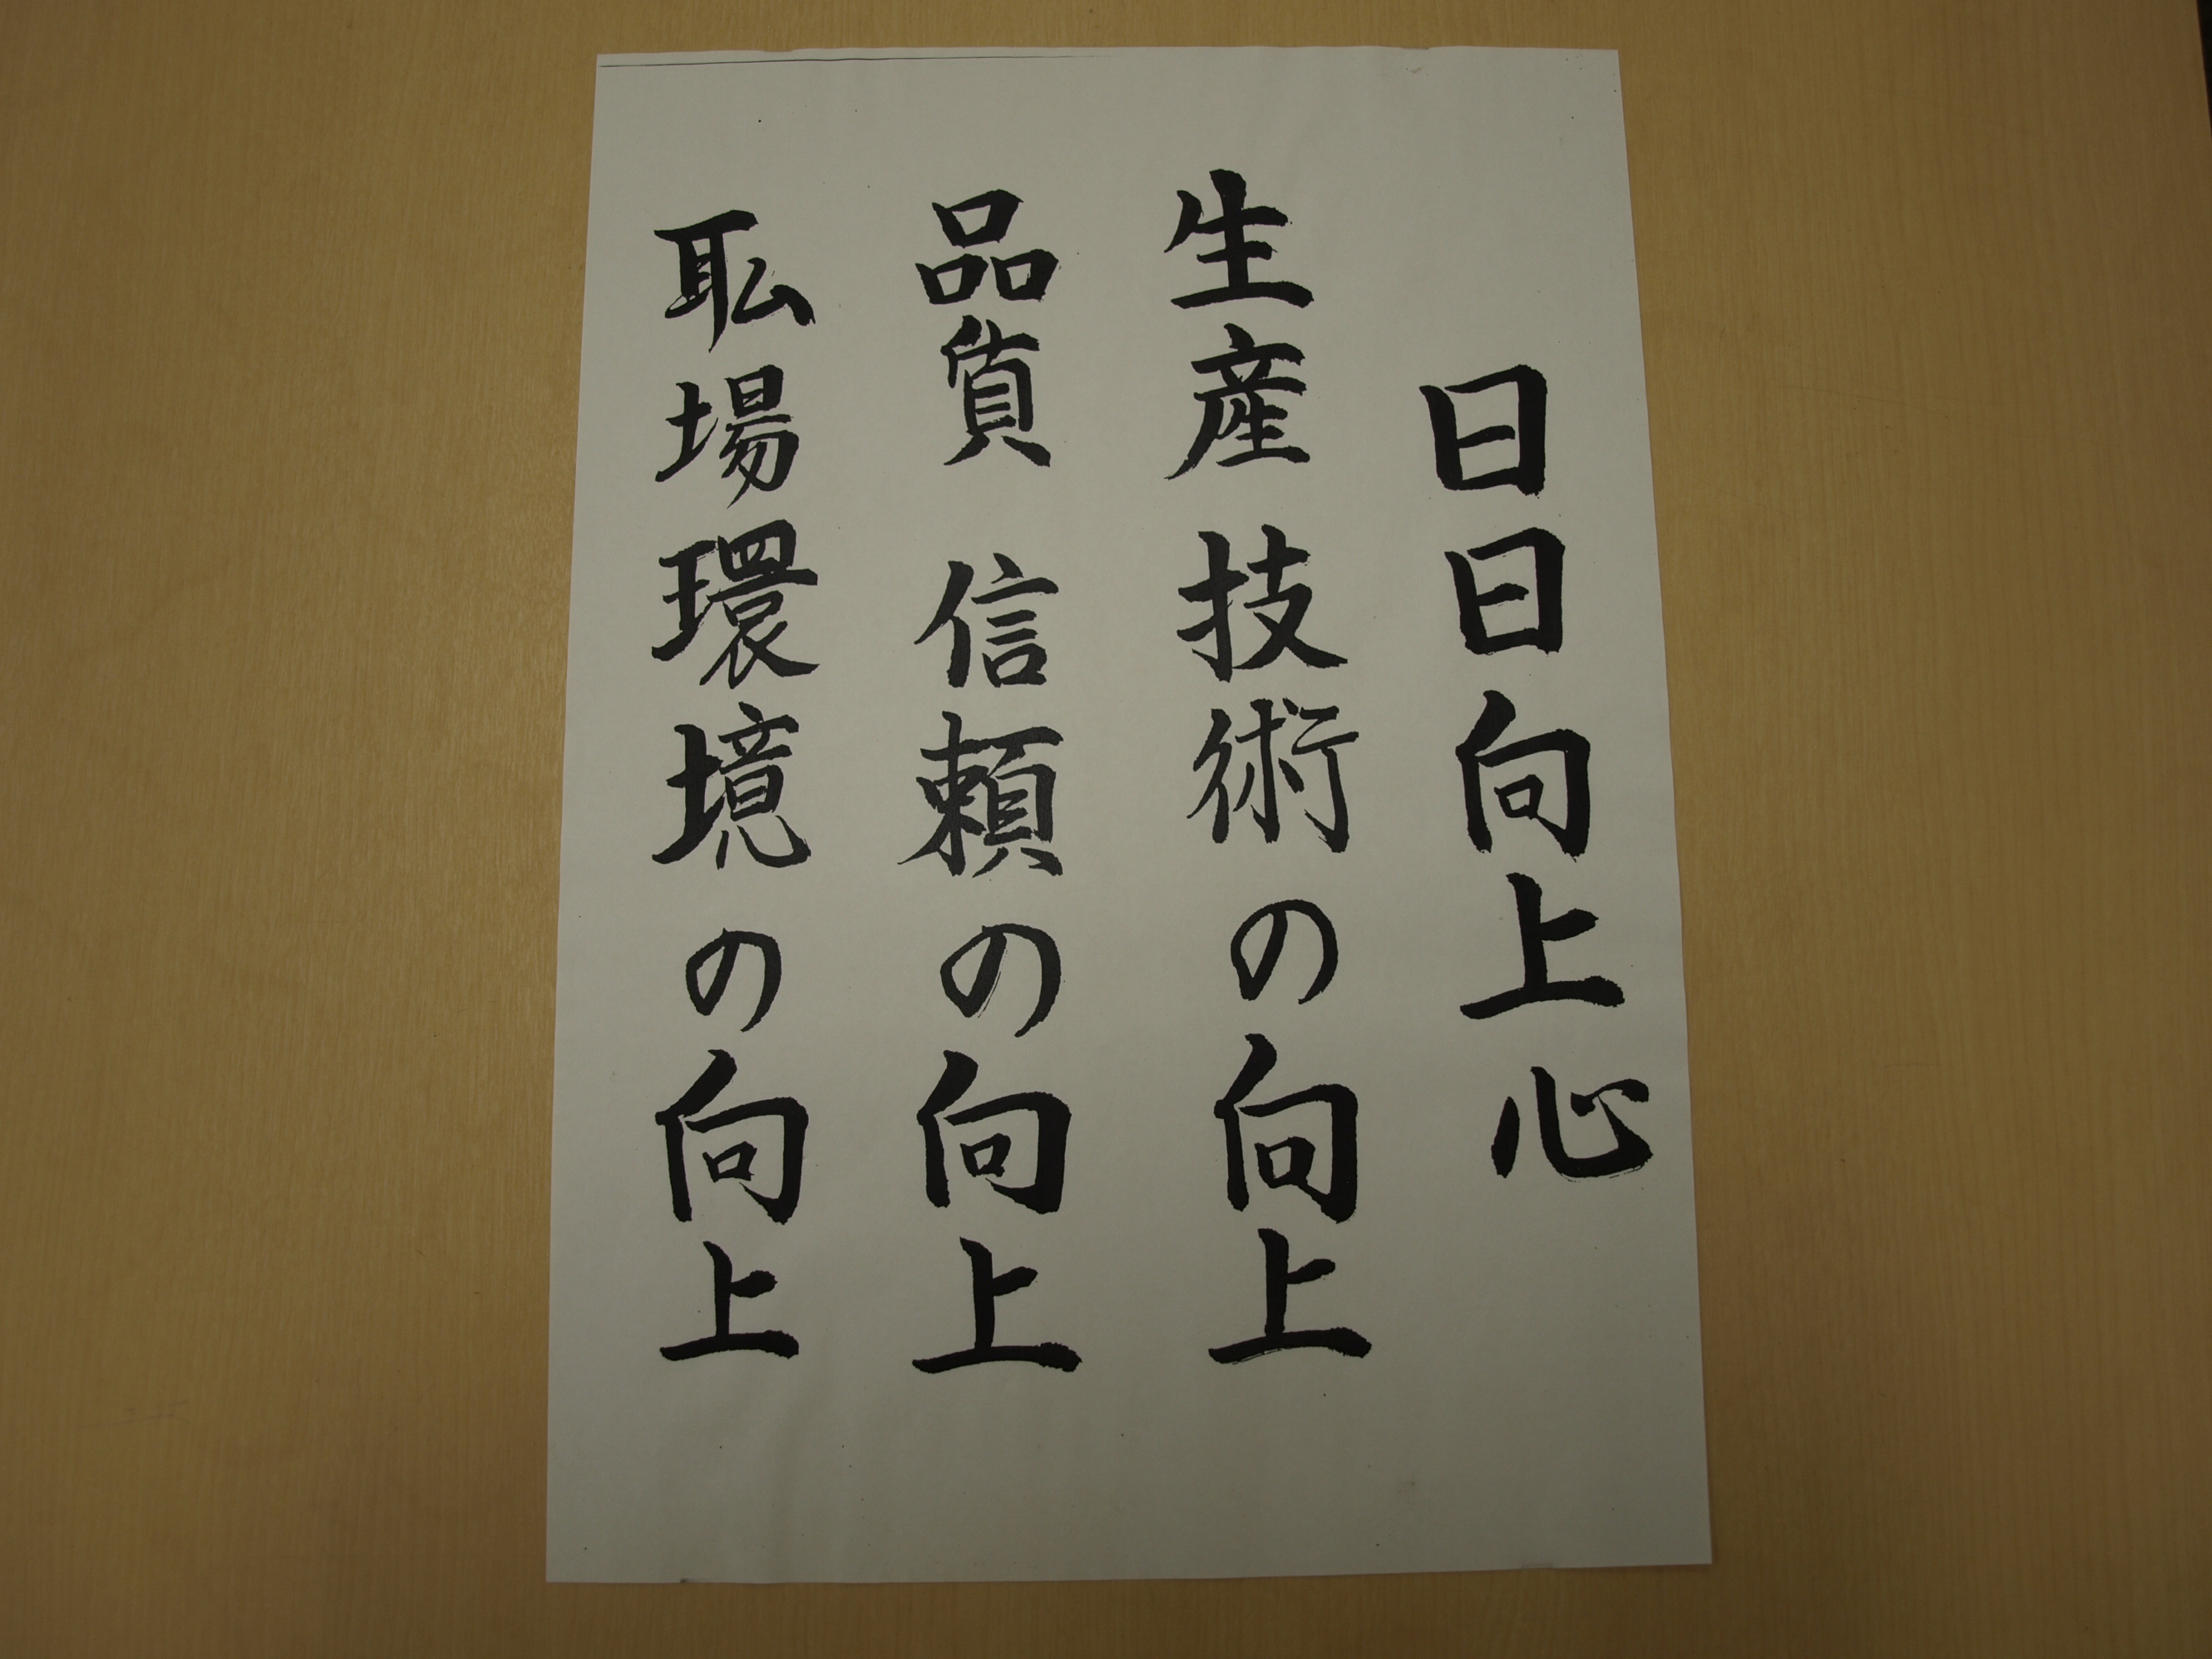 日日向上心
生産 技術の向上
品質 信頼の向上
耺場環境の向上